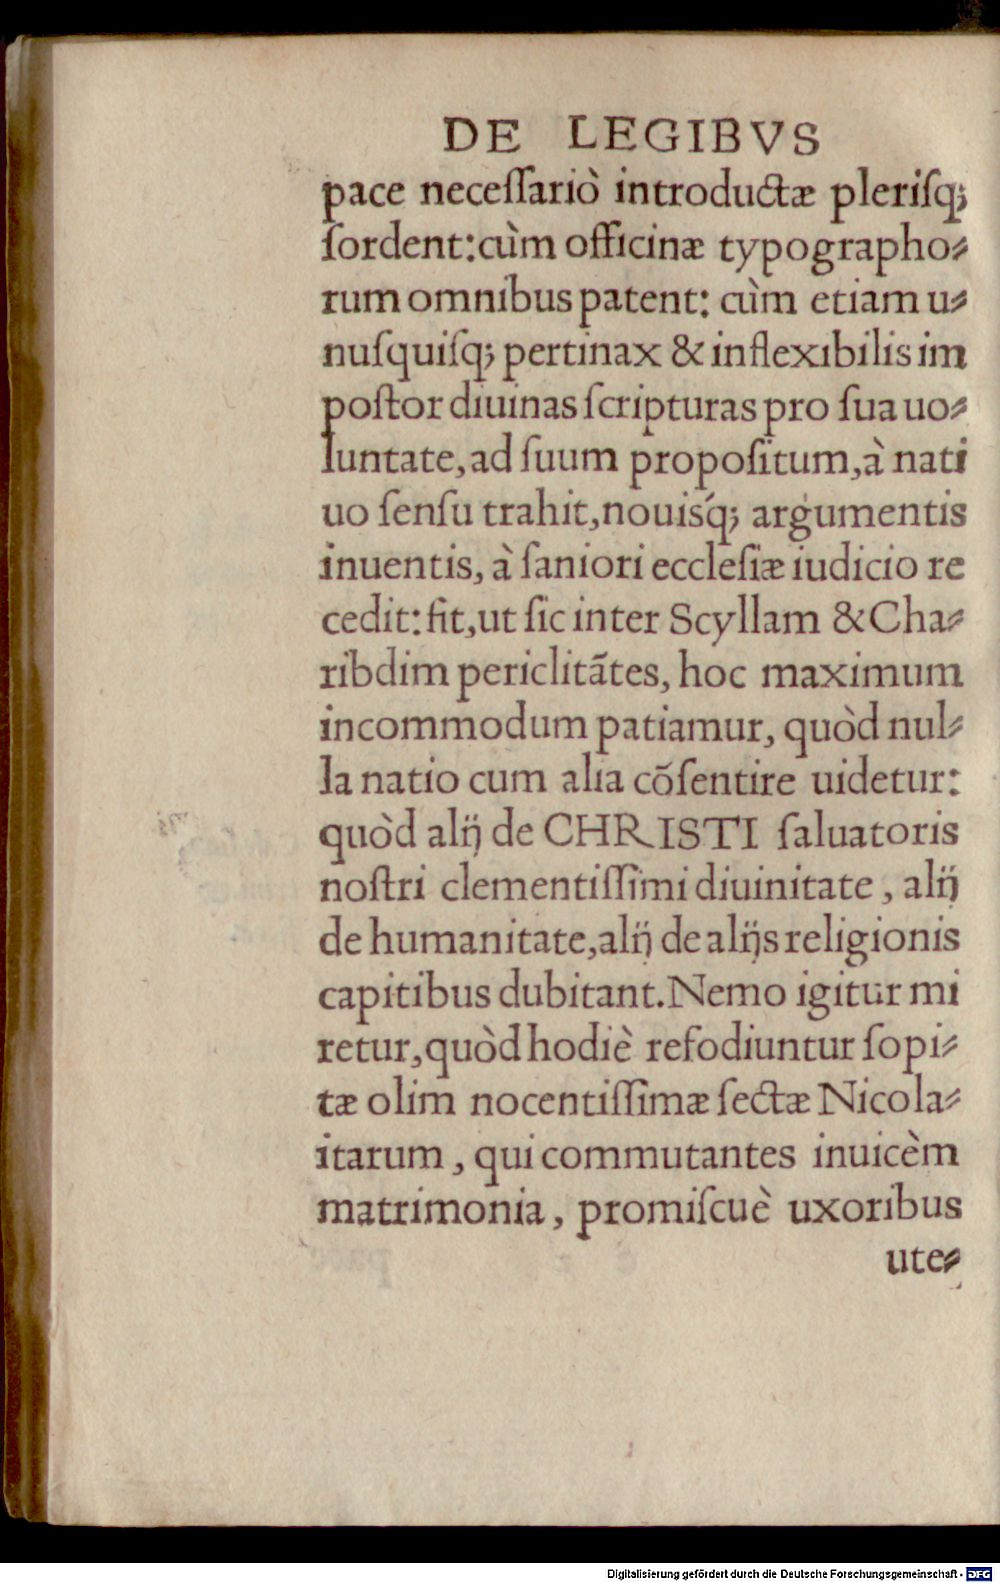 DE LEGIBVS
pace neceſſariò introductæ pleriſq;
ſordent: cùm officinæ typographo⸗
rum omnibus patent: cùm etiam u⸗
nuſquiſq; pertinax & inflexibilis im
poſtor diuinas ſcripturas pro ſua uo⸗
luntate, ad ſuum propoſitum, à nati
uo ſenſu trahit, nouisq́; argumentis
inuentis, à ſaniori eccleſiæ iudicio re
cedit: fit, ut ſic inter Scyllam & Cha⸗
ribdim periclitãtes, hoc maximum
incommodum patiamur, quòd nul⸗
la natio cum alia cõſentire uidetur:
quòd alij de CHRISTI ſaluatoris
noſtri clementiſſimi diuinitate, alij
de humanitate, alij de alijs religionis
capitibus dubitant. Nemo igitur mi
retur, quòd hodiè refodiuntur ſopi⸗
tæ olim nocentiſſimæ ſectæ Nicola⸗
itarum, qui commutantes inuicèm
matrimonia, promiſcuè uxoribus
ute⸗
Digitalisierung gefördert durch die Deutsche Forschungsgemeinschaft - DFG